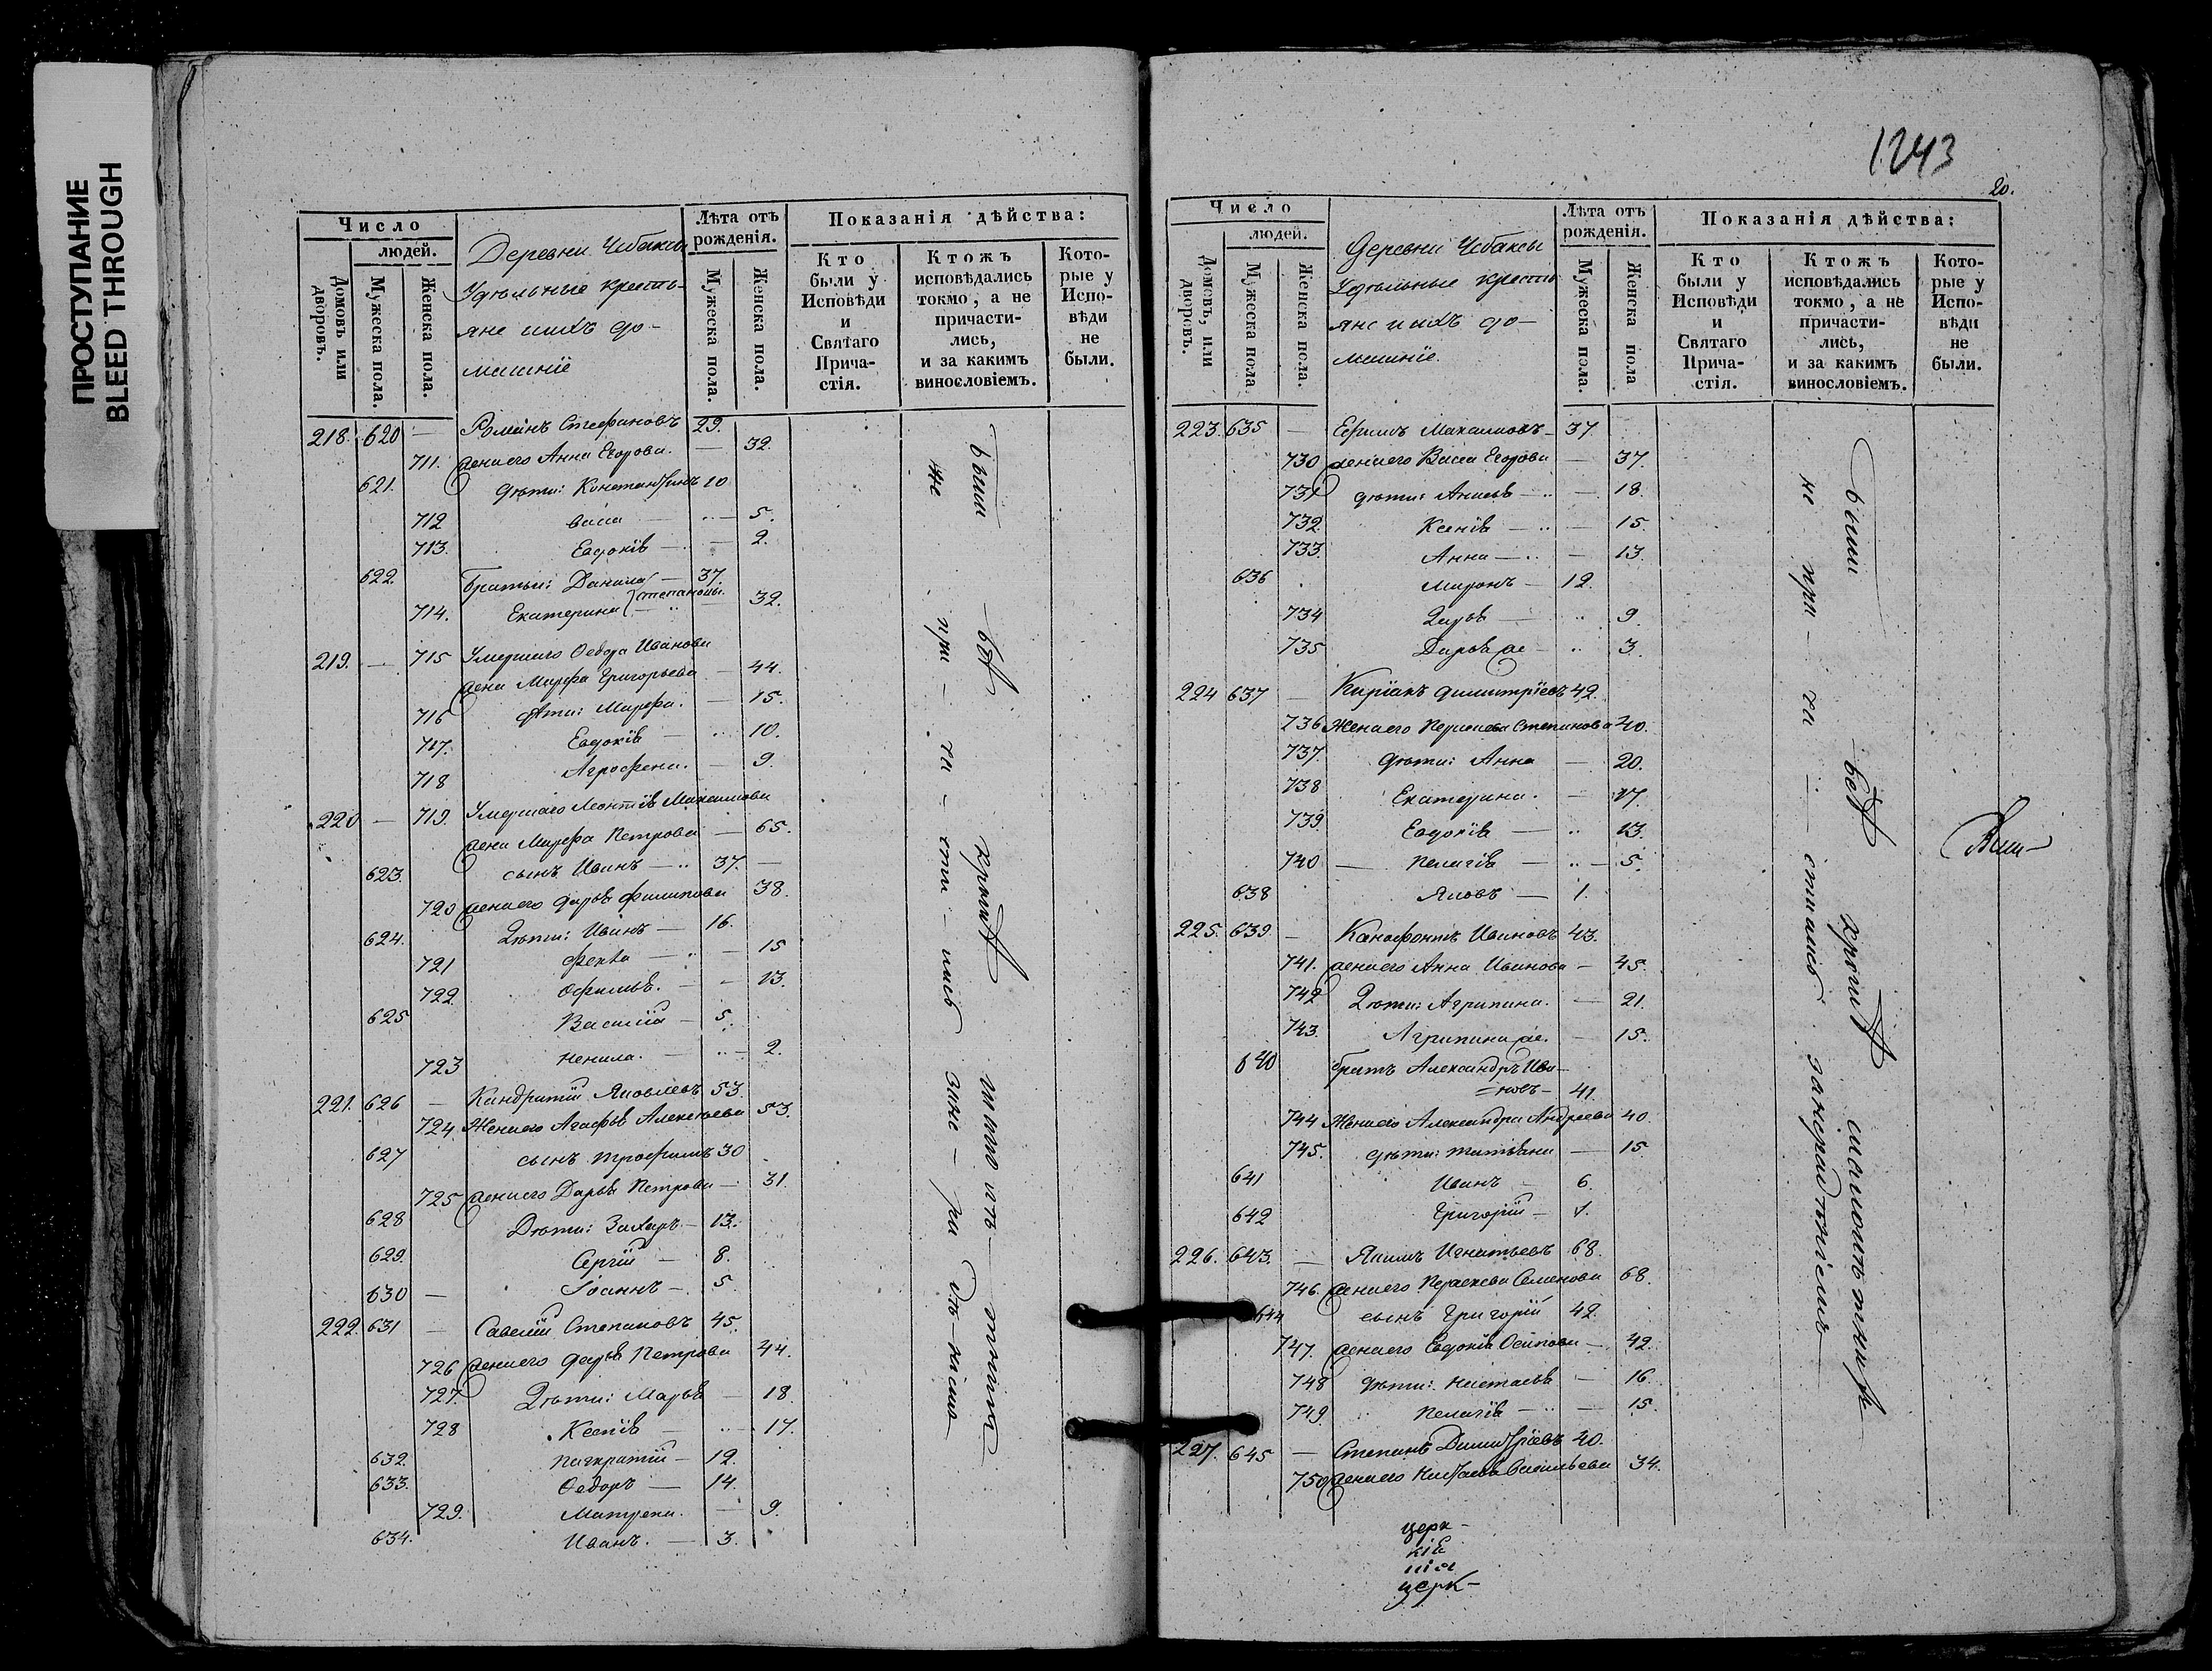 ПРОСТУПАНИЕ
BLEED THROUGH
Число
людей.
Домовъ или дворовъ.
Мужеска пола.
Женска пола.
Деревни Чебаксы
Удѣльные кресть-
яне и ихъ до-
машніе
Лѣта отъ рожденія.
Мужеска пола.
Женска пола.
Показанія дѣйства:
Кто были у Исповѣди и Святаго Прича-стія.
Ктожъ исповѣдались токмо, а не причасти-лись, и за какимъ винословіемъ.
Кото-рые у Испо-вѣди не были.
218. 620 — Романъ Стефановъ 29.
711. жена его Анна Егорова. — 32.
621. дѣти: Константинъ 10
712 Васса — 5.
713. Евдокія — 2.
622. Братья: Данила — 37.
714. Екатерина Степановы. — 32.
219. — 715 Умершаго Ѳедора Иванова
жена Марфа Григорьева — 44.
716 дѣти: Марфа. — 15.
717. Евдокія — 10.
718 Агрофена. — 9.
220 — 719. Умершаго Леонтія Максимова
жена Марфа Петрова — 65.
623. сынъ Иванъ — 37. —
720 жена его Дарья Филипова 38.
624. Дѣти: Иванъ — 16.
721 Фекла — 15
722. Офимья. — 13.
625 Василій — 5.
723 Ненила. — 2.
221. 626 — Кандратій Яковлевъ 53.
724 Жена его Агафья Алексѣева 53.
627 сынъ Трофимъ 30
725 жена его Дарья Петрова — 31.
628 Дѣти: Захаръ — 13.
629. Сергій — 8.
630 — Іоаннъ — 5.
222. 631 — Савелій Степановъ 45.
726 жена его Дарья Петрова 44.
727. Дѣти: Марья — 18.
728 Ксенія — 17.
632. Панкратій — 12.
633. Ѳедоръ — 14.
729. Матрена. — 9.
634. Иванъ. — 3.
были
не при-ча-сти-лись
1243
20.
Число
людей.
Домовъ, или дворовъ.
Мужеска пола
Женска пола.
Деревни Чебаксы
Удѣльные кресть
яне и ихъ до-
машніе.
Лѣта отъ рожденія.
Мужеска пола.
Женска пола
Показанія дѣйства:
Кто были у Исповѣди и Святаго Прича-стія.
Ктожъ исповѣдались токмо, а не причасти-лись, и за какимъ винословіемъ.
Кото-рые у Испо-вѣди не были.
223. 635 — Ефимъ Максимовъ — 37.
730 жена его Васса Егорова — 37.
731 дѣти: Анисья — 18.
732. Ксенія — 15.
733. Анна — 13.
636 Миронъ — 12.
734 Дарья — 9.
735 Дарья же — 3.
224 637 — Киріакъ Димитріевъ 42.
736 Жена его Параскева Степанова 40.
737. дѣти: Анна — 20.
738 Екатерина. — 17.
739. Евдокія — 13.
740 — Пелагія — 5.
638 Яковъ — 1.
225. 639 — Канофонтъ Ивановъ 43.
741. жена его Анна Иванова — 45.
742 Дѣти: Агрипина. — 21.
743. Агрипина же. — 15.
640 братъ Александръ Ива-
=новъ — 41.
744 Жена его Александра Андреева 40.
745. дѣти: Татьяна — 15.
641 Иванъ — 6.
642 Григорій — 1.
226. 643. — Якимъ Игнатьевъ 68.
746. жена его Параскева Семенова 68.
644 сынъ Григорій 42.
747. жена его Евдокія Осипова — 42.
748 дѣти: Настасья — 16.
749. Пелагія — 15.
227. 645 — Степанъ Димитріевъ 40.
750 жена его Настасья Васильева 34.
были
не при-ча-стились
церк-
кія
нія
церк-